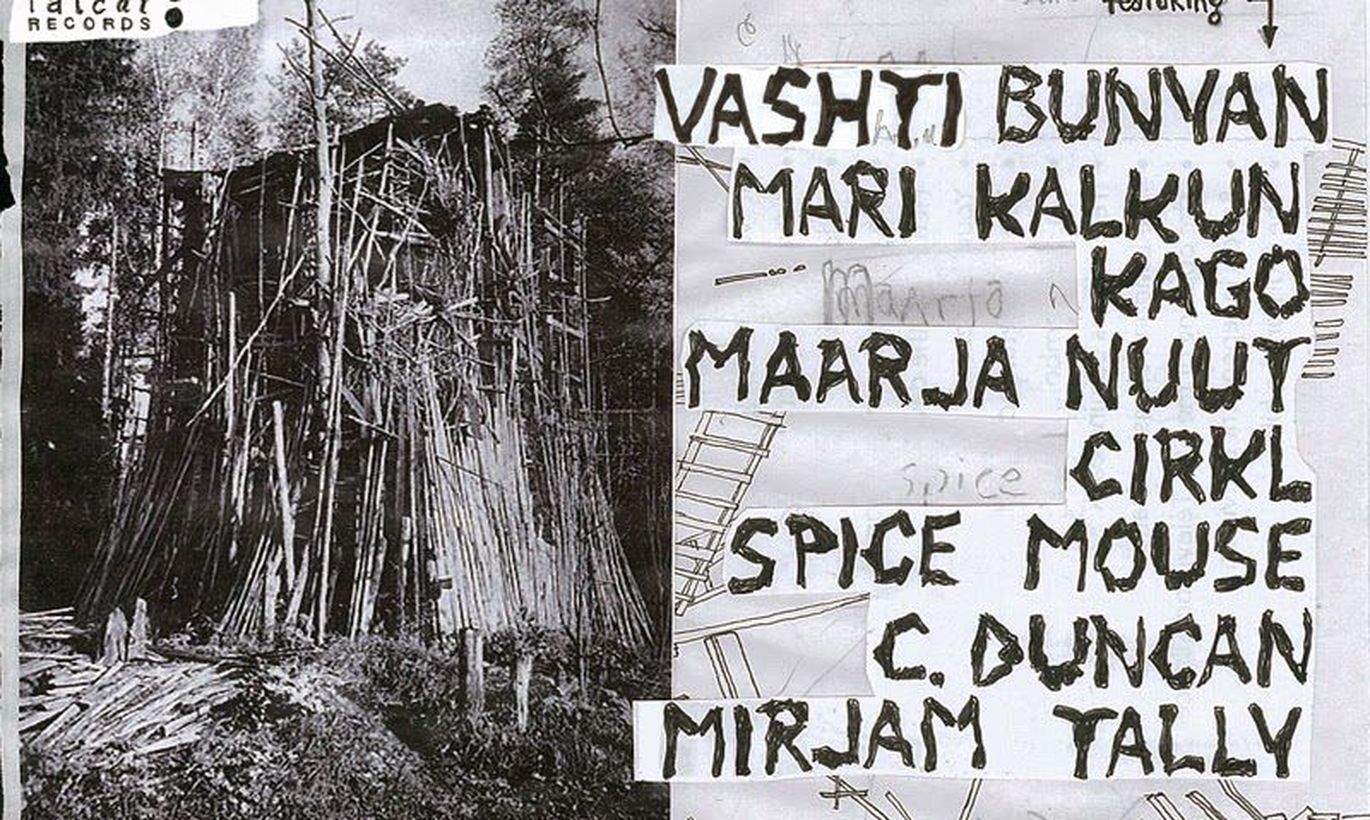 fatcat
RECORDS
featuring
VASHTI BUNYAN
MARI KALKUN
KAGO
Maarja
MAARJA NUUT
CIRKL
spice
SPICE MOUSE
C. DUNCAN
MIRJAM TALLY